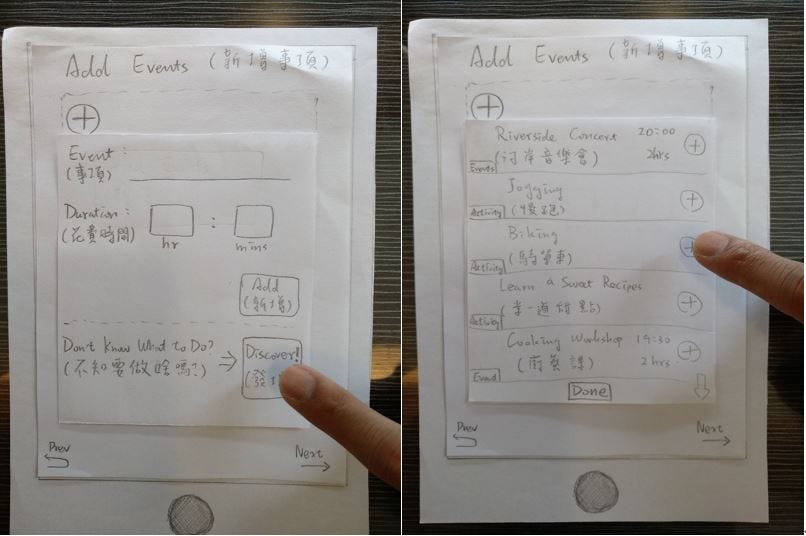 Add Events (新增事項)
Event :
(事項)
Duration :
(花費時間)
:
hr
mins
Add
(新增)
Don't Know What to Do?
(不知要做啥嗎?)
Discover!
(發
Prev
Next
Add Events (新增事項)
Riverside Concert 20:00
(河岸音樂會) 2hrs
Events
Jogging
(慢跑)
Activity
Biking
(騎單車)
Activity
Learn a Sweet Recipes
(學一道甜點)
Activity
Cooking Workshop 19:30
(廚藝課) 2 hrs
Event
Done
Prev
Next